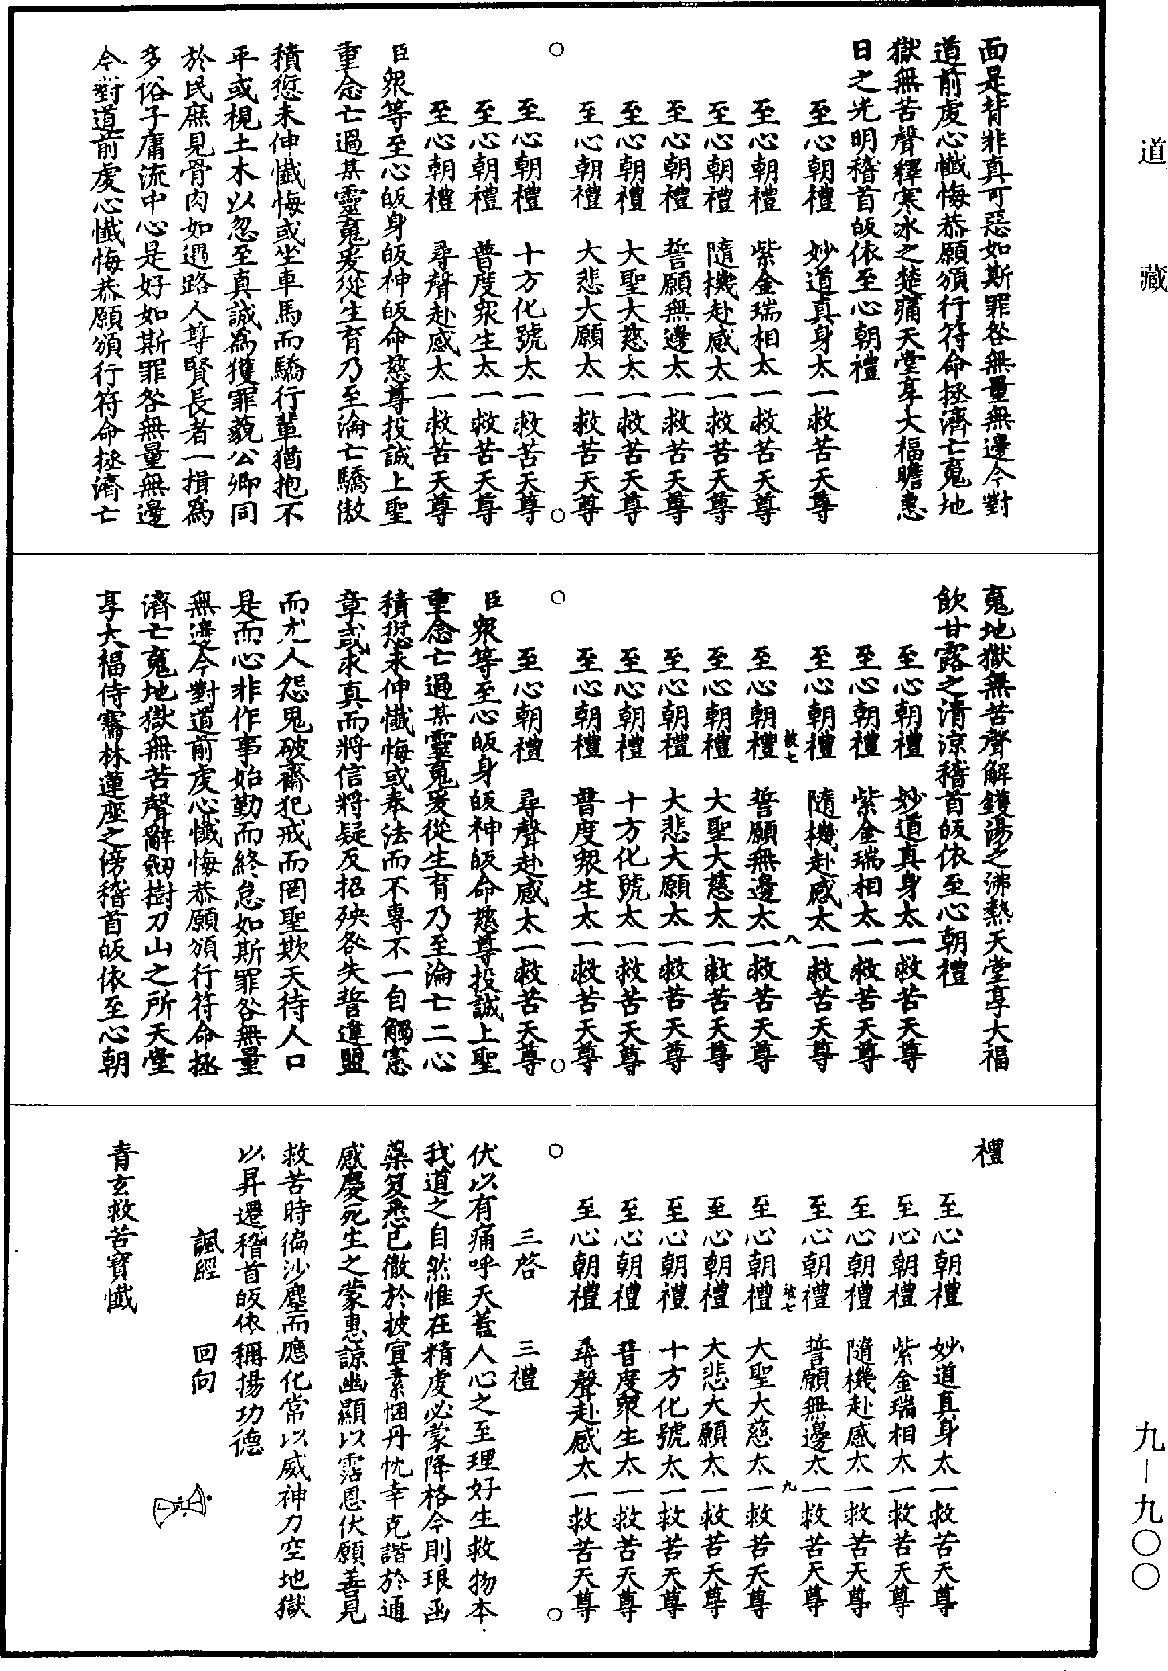 道藏
九—九〇〇
面是背非真可惡如斯罪咎無量無邊今對
道前虔心懺悔恭願頒行符命拯濟亡䰟地
獄無苦聲釋寒冰之楚痛天堂享大福瞻惠
日之光明稽首皈依至心朝禮
至心朝禮　妙道真身太一救苦天尊
至心朝禮　紫金瑞相太一救苦天尊
至心朝禮　隨機赴感太一救苦天尊
至心朝禮　誓願無邊太一救苦天尊
至心朝禮　大聖大慈太一救苦天尊
至心朝禮　大悲大願太一救苦天尊
至心朝禮　十方化號太一救苦天尊
至心朝禮　普度衆生太一救苦天尊
至心朝禮　尋聲赴感太一救苦天尊
臣衆等至心皈身皈神皈命慈尊投誠上聖
重念亡過某靈䰟爰從生育乃至淪亡驕傲
積愆未伸懺悔或坐車馬而驕行輩猶抱不
平或視土木以忽至真誠爲獲罪藐公卿同
於民庶見骨肉如過路人尊賢長者一揖爲
多俗子庸流中心是好如斯罪咎無量無邊
今對道前虔心懺悔恭願頒行符命拯濟亡
䰟地獄無苦聲解鑊湯之沸熱天堂享大福
飲甘露之清涼稽首皈依至心朝禮
至心朝禮　妙道真身太一救苦天尊
至心朝禮　紫金瑞相太一救苦天尊
至心朝禮　隨機赴感太一救苦天尊
八
至心朝禮　誓願無邊太一救苦天尊
至心朝禮　大聖大慈太一救苦天尊
至心朝禮　大悲大願太一救苦天尊
至心朝禮　十方化號太一救苦天尊
至心朝禮　普度衆生太一救苦天尊
至心朝禮　尋聲赴感太一救苦天尊
臣衆等至心皈身皈神皈命慈尊投誠上聖
重念亡過某靈䰟爰從生育乃至淪亡二心
積愆未伸懺悔或奉法而不專不一自觸憲
章或求真而將信將疑反招殃咎失誓違盟
而尤人怨鬼破齋犯戒而罔聖欺天待人口
是而心非作事始勤而終怠如斯罪咎無量
無邊今對道前虔心懺悔恭願頒行符命拯
濟亡䰟地獄無苦聲辭劒樹刀山之所天堂
享大福侍騫林蓮座之傍稽首皈依至心朝
禮
至心朝禮　妙道真身太一救苦天尊
至心朝禮　紫金瑞相太一救苦天尊
至心朝禮　隨機赴感太一救苦天尊
至心朝禮　誓願無邊太一救苦天尊
九
至心朝禮　大聖大慈太一救苦天尊
至心朝禮　大悲大願太一救苦天尊
至心朝禮　十方化號太一救苦天尊
至心朝禮　普度衆生太一救苦天尊
至心朝禮　尋聲赴感太一救苦天尊
三啓　三禮
伏以有痛呼天蓋人心之至理好生救物本
我道之自然惟在精虔必蒙降格今則琅函
蘂笈悉已徹於披宣素悃丹忱幸克諧於通
感慶死生之蒙惠諒幽顯以霑恩伏願善見
救苦時徧沙塵而應化常以威神力空地獄
以昇遷稽首皈依稱揚功德
諷經　回向
青玄救苦寶懺